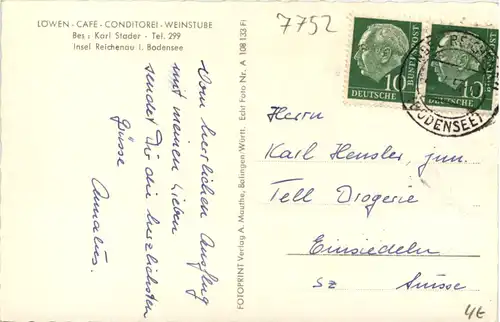 LÖWEN - CAFÉ - CONDITOREI - WEINSTUBE
Bes.: Karl Stader - Tel. 299
Insel Reichenau i. Bodensee
Vom herrlichen Ausflug
mit meinen Lieben
sendet Dir die herzlichsten
Grüsse
FOTOPRINT Verlag A. Mauthe, Balingen-Württ. Echt Foto Nr. A 108 133 Fi
7752
10
DEUTSCHE
BUNDESPOST
10
DEUTSCHE
BUNDESPOST
(BODENSEE)
Herrn
Karl Hensler, jun.
Tell Drogerie
Einsiedeln
SZ Suisse
4€